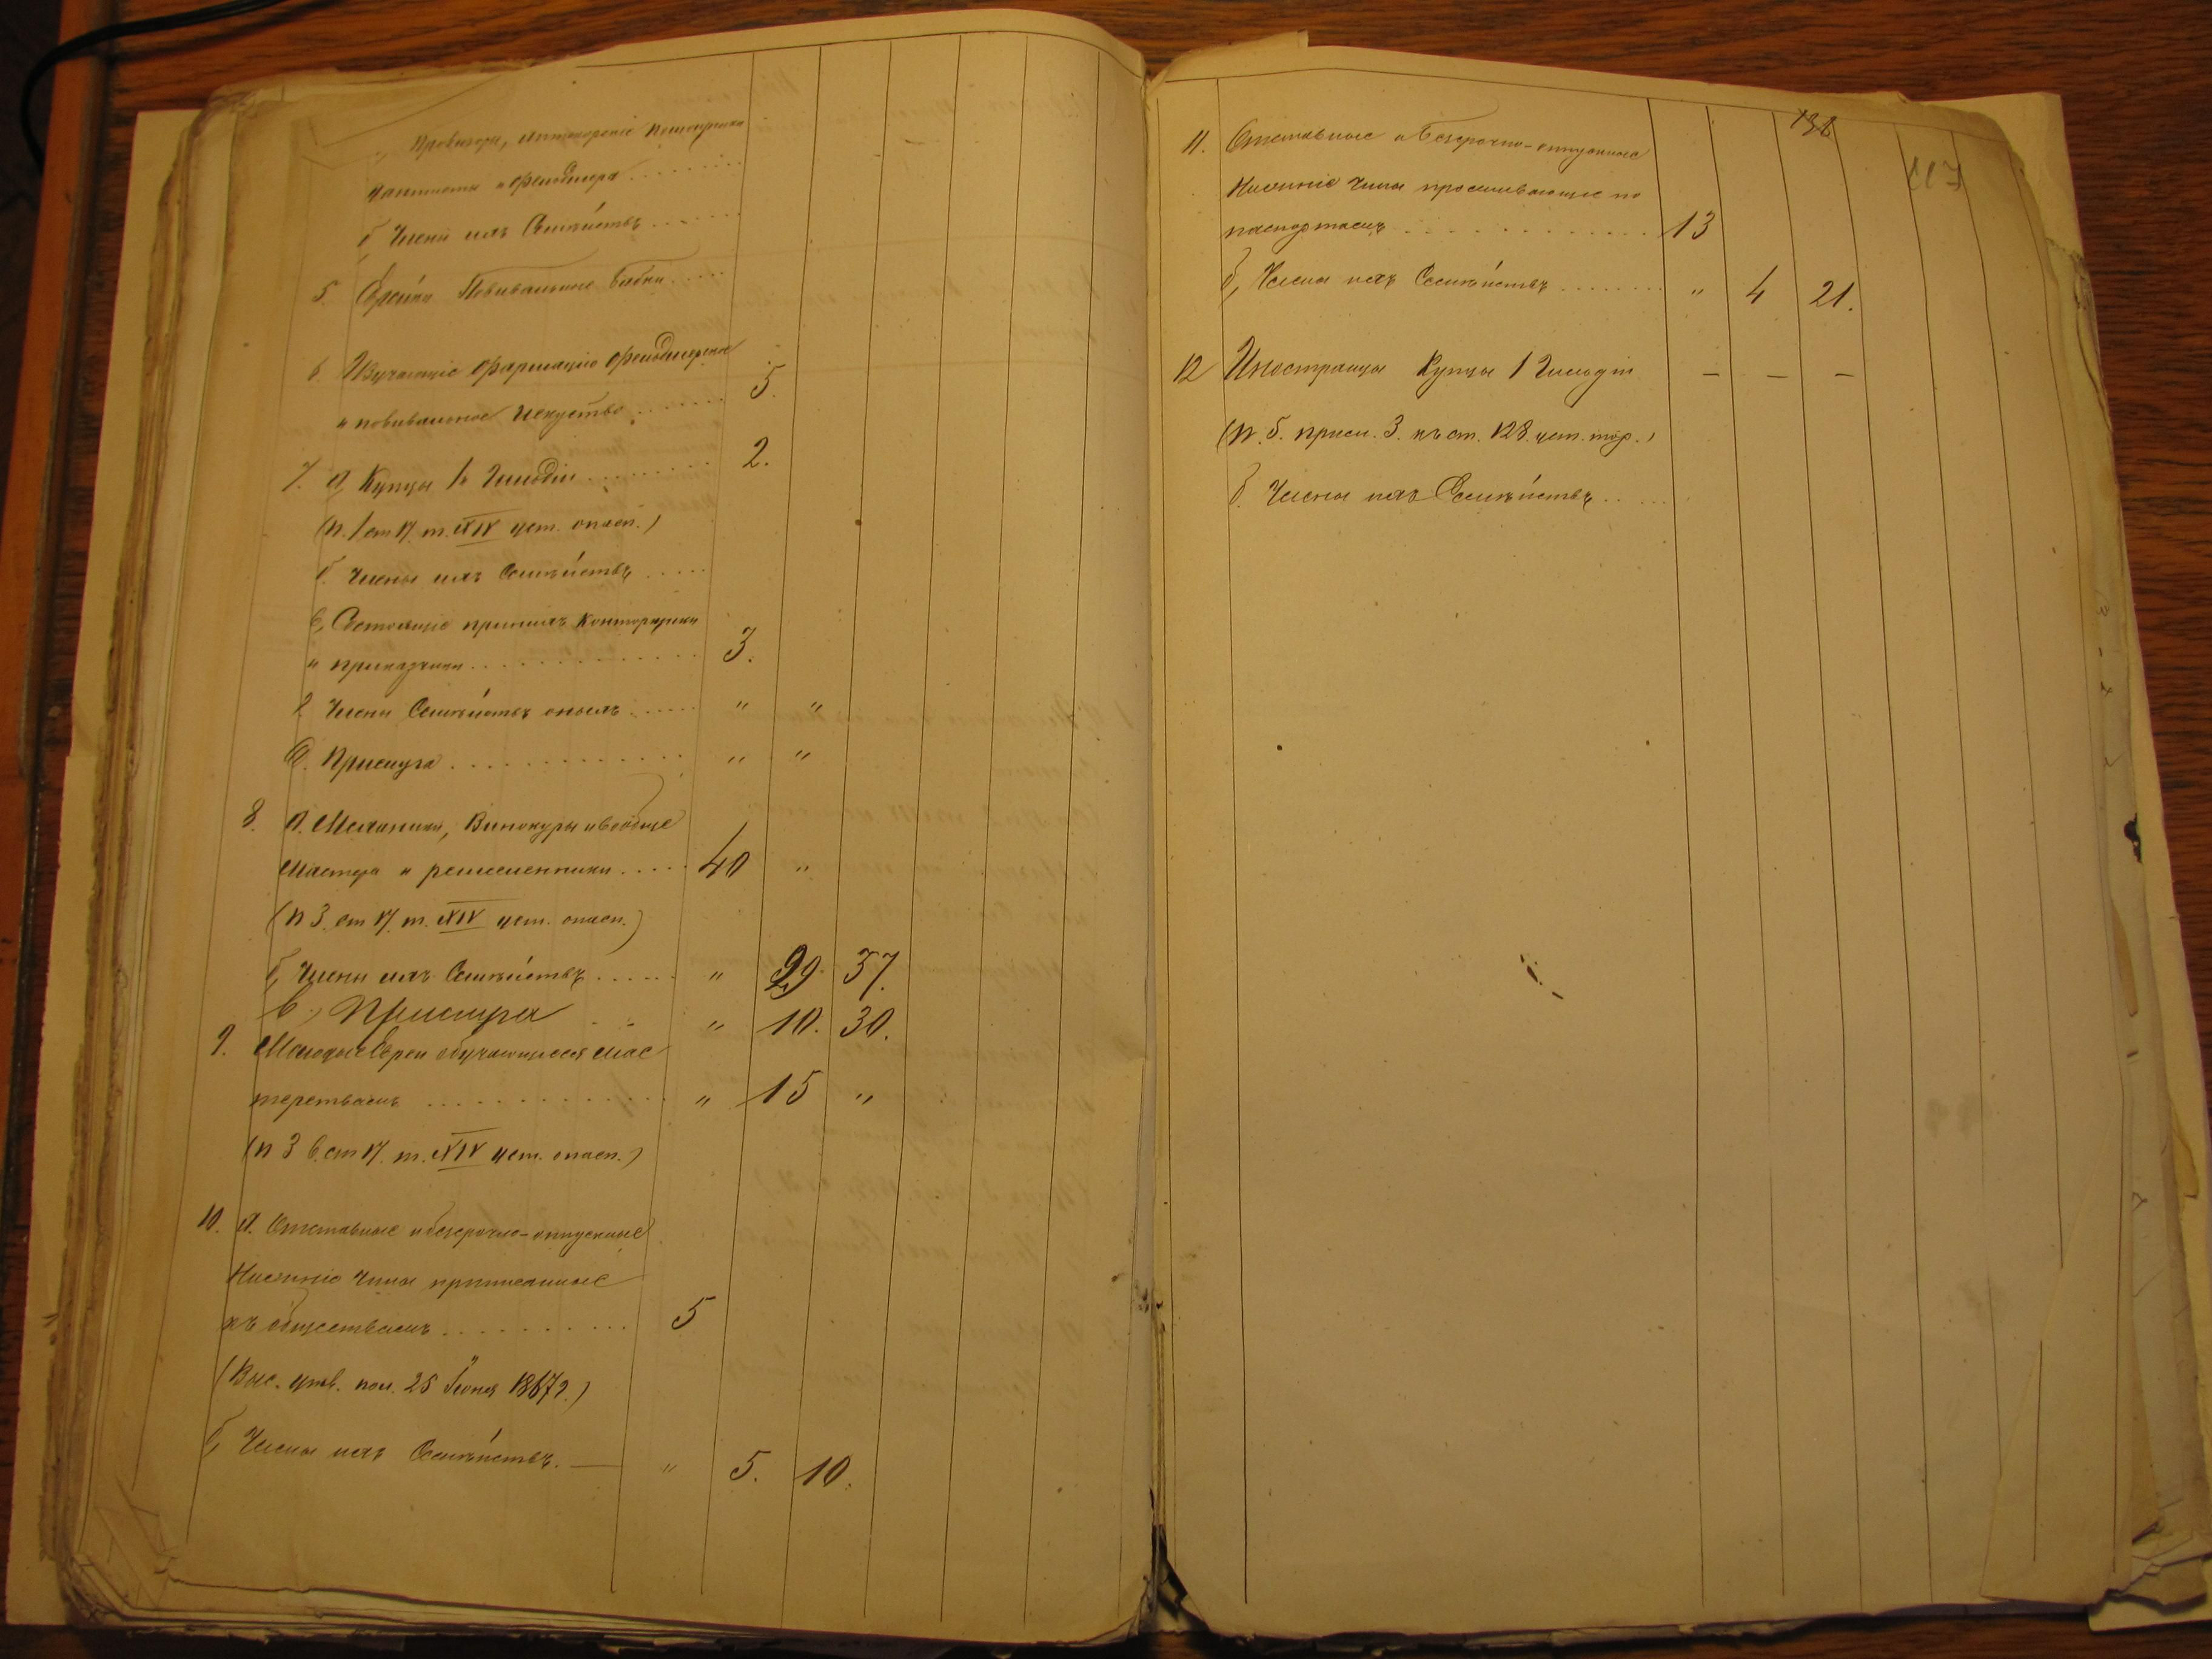 Провизоры, Аптекарскіе Помощники
Дантисты и Фельдшера . . . . . .
б, Члены ихъ Семействъ . . . . .
5. Еврейки Повивальныя бабки . . . .
6. Изучающіе Фармацію Фельдшерское
и повивальное Искуство . . . . . . 5.
7. а, Купцы 1й Гильдіи . . . . . . . 2.
(п. 1 ст 17. т. XIV уст. о пасп.)
б. Члены ихъ Семействъ . . . . .
в, Состоящіе при нихъ Конторщики
и прикащики . . . . . . . . . . . . 3.
г Члены Семействъ оныхъ . . . . . " "
д. Прислуга . . . . . . . . . . . . " "
8. а. Механики, Винокуры и вообще
Мастера и ремесленники . . . . . 40 "
(п 3. ст 17. т. XIV уст. о пасп.)
б, Члены ихъ Семействъ . . . . . . " 29. 37.
в.) Прислуга . . " 10. 30.
9. Молодые Евреи обучающіеся мас
терствамъ . . . . . . . . . . . . . " 15 "
(п 3 в. ст 17. т. XIV уст. о пасп.)
10. а. Отставные и безсрочно-отпускные
Нижніе Чины приписанные
къ обществамъ . . . . . . . . . . 5
(Выс. утв. пол. 25 Іюня 1867 г.)
б, Члены ихъ Семействъ. — " 5. 10.
138
117
11. Отставные и Безсрочно-отпускные
Нижніе Чины проживающіе по
паспортамъ . . . . . . . . . . . . . 13
б, Члены ихъ Семействъ . . . . . . . . " 4 21.
12 Иностранцы Купцы 1 Гильдіи — — —
(п. 5. прим. 3. къ ст. 128. уст. тор.)
б. Члены ихъ Семействъ . . . . .